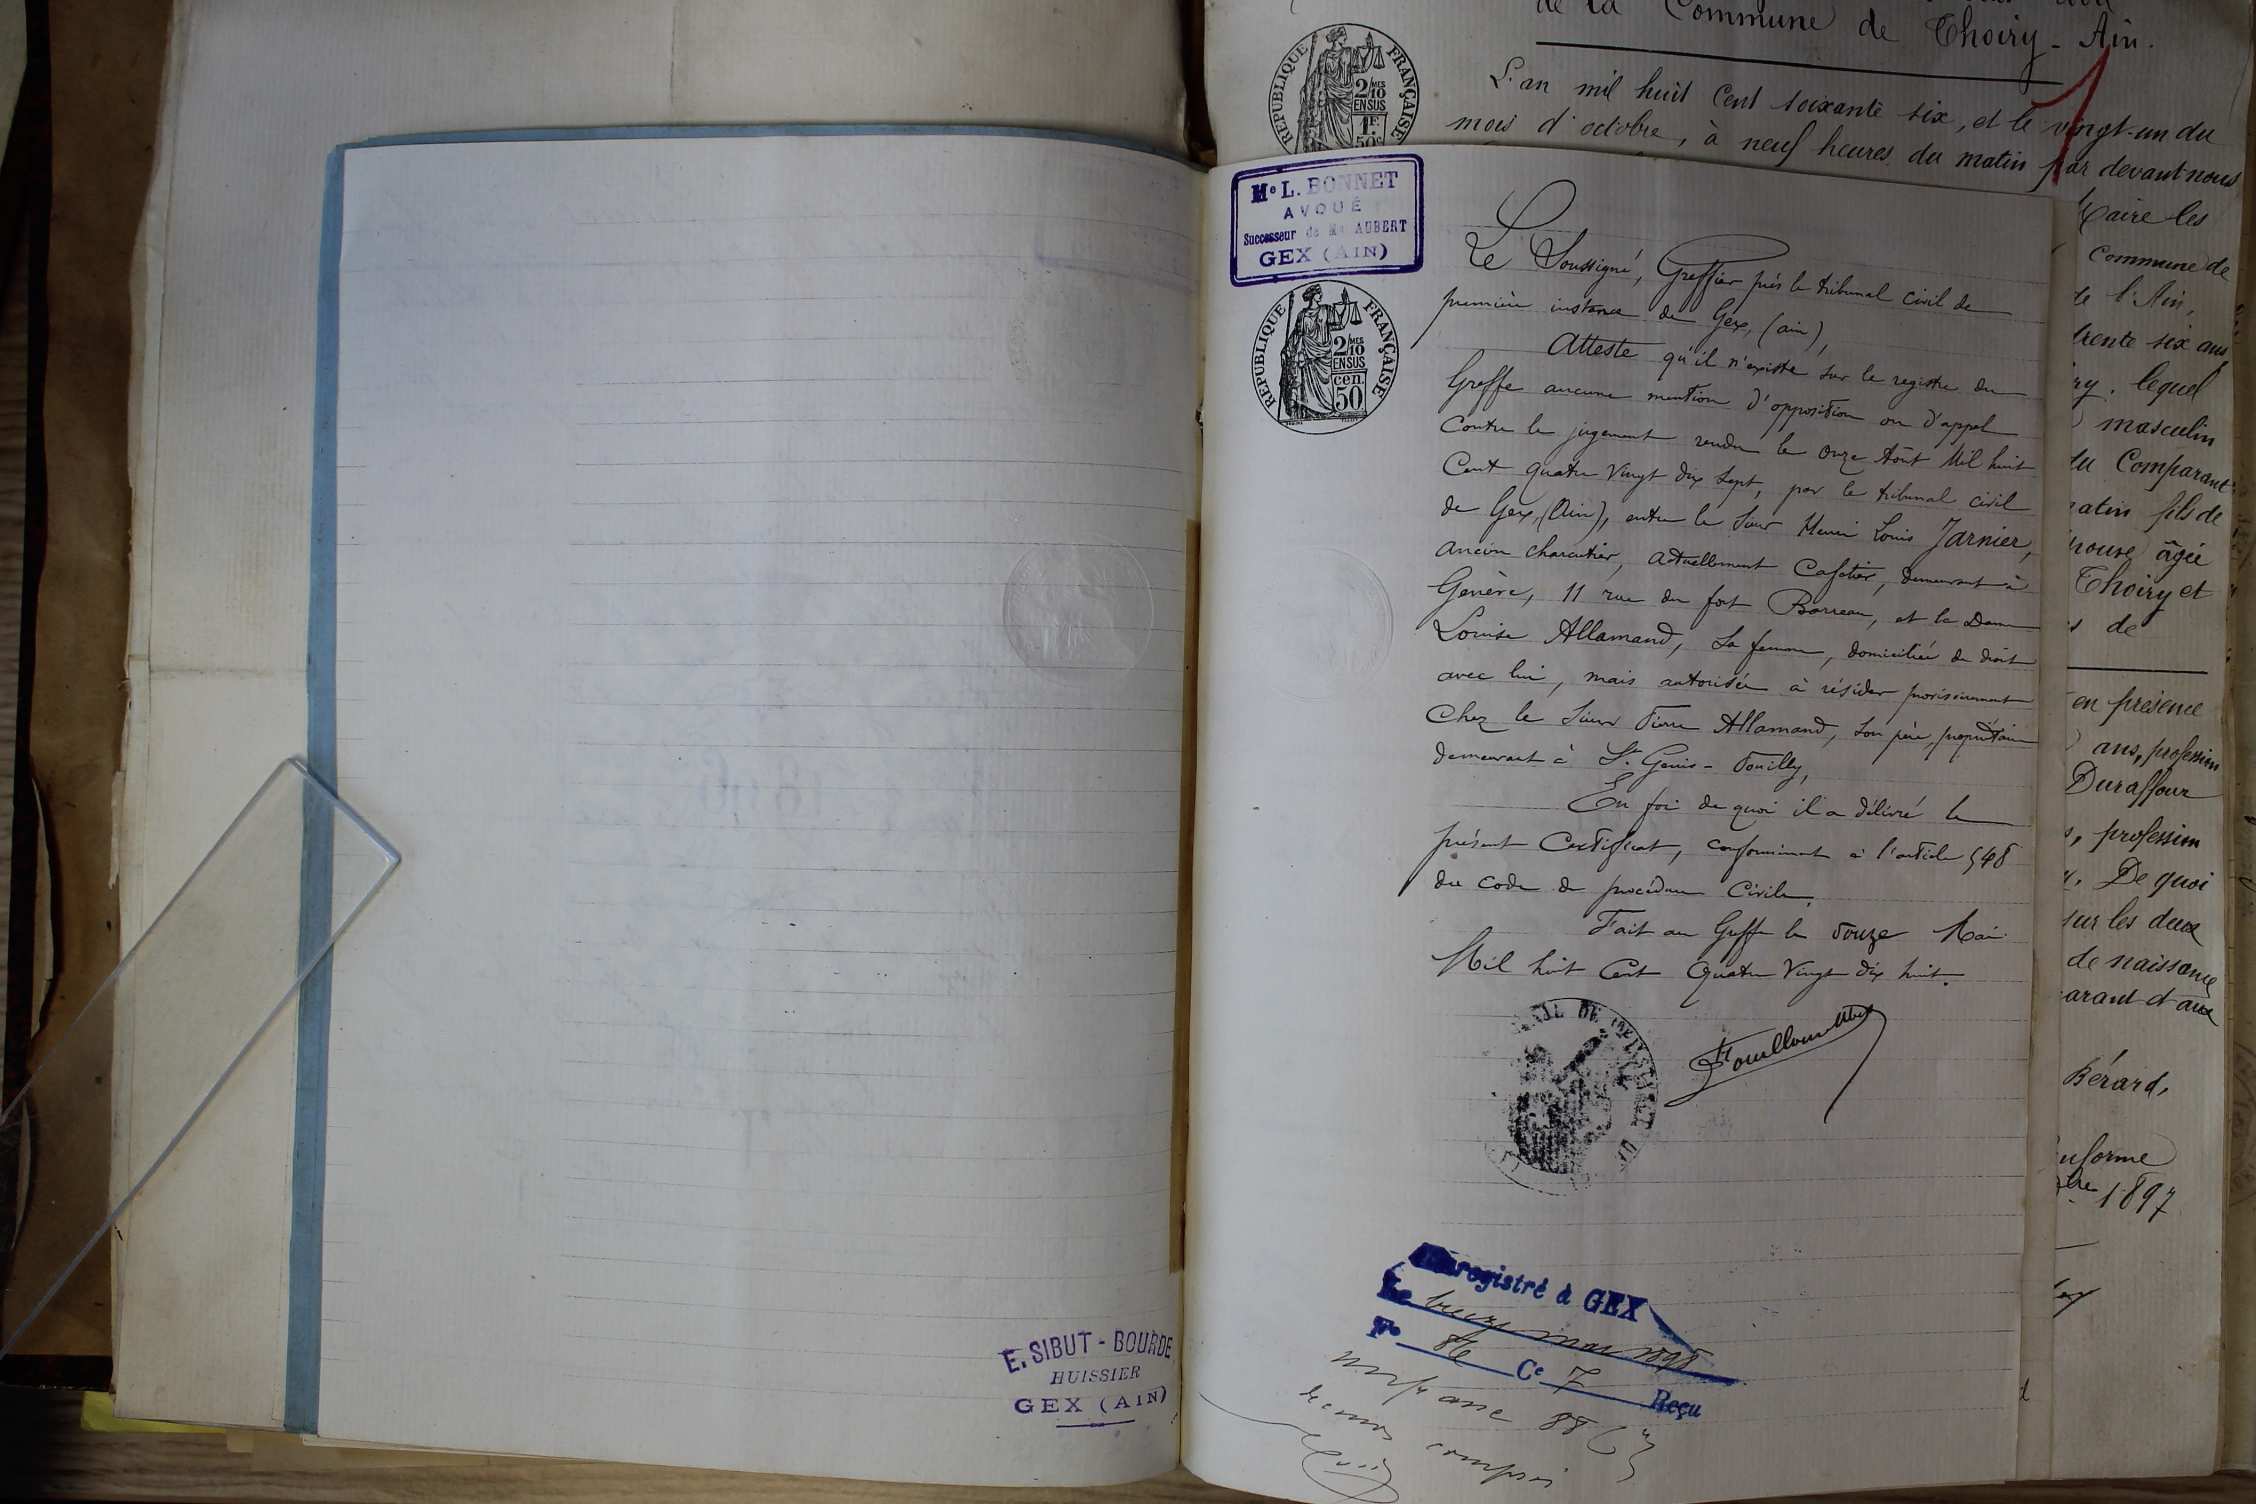 de la Commune de Thoiry - Ain.
L'an mil huit cent soixante six, et le vingt-un du
mois d'octobre, à neuf heures du matin par devant nous
Maire les
commune de
de l'Ain,
trente six ans
lequel
masculin
du Comparant
matin fils de
âgée
Thoiry et
de
en présence
ans, profession
Duraffour
profession
De quoi
sur les deux
de naissance
et aux
Bérard,
1897
REPUBLIQUE FRANÇAISE
2/10 MES
EN SUS
1F.
50c
Me L. BONNET
AVOUÉ
Successeur de Me AUBERT
GEX (AIN)
REPUBLIQUE FRANÇAISE
2/10 MES
EN SUS
cen.
50
Le Soussigné, Greffier près le tribunal civil de
première instance de Gex, (ain),
Atteste qu'il n'existe sur le registre du
Greffe aucune mention d'opposition ou d'appel
Contre le jugement rendu le onze Août Mil huit
Cent quatre Vingt dix Sept, par le tribunal civil
de Gex, (Ain), entre le Sieur Henri Louis Jarnier,
ancien charcutier, actuellement Cafetier, demeurant à
Genève, 11 rue du fort Barreau, et la Dame
Louise Allamand, sa femme, domiciliée de droit
avec lui, mais autorisée à résider provisoirement
Chez le Sieur Pierre Allamand, son père, propriétaire
demeurant à St. Genis-Pouilly,
En foi de quoi il a délivré le
présent Certificat, conformément à l'article 548
du code de procédure Civile.
Fait au Greffe le Douze Mai
Mil huit Cent Quatre Vingt dix huit.
Enregistré à GEX
Le treize mai 1898
Fo 86 Ce 7 Reçu
un franc 88 c
décimes compris
E. SIBUT-BOURDE
HUISSIER
GEX (AIN)